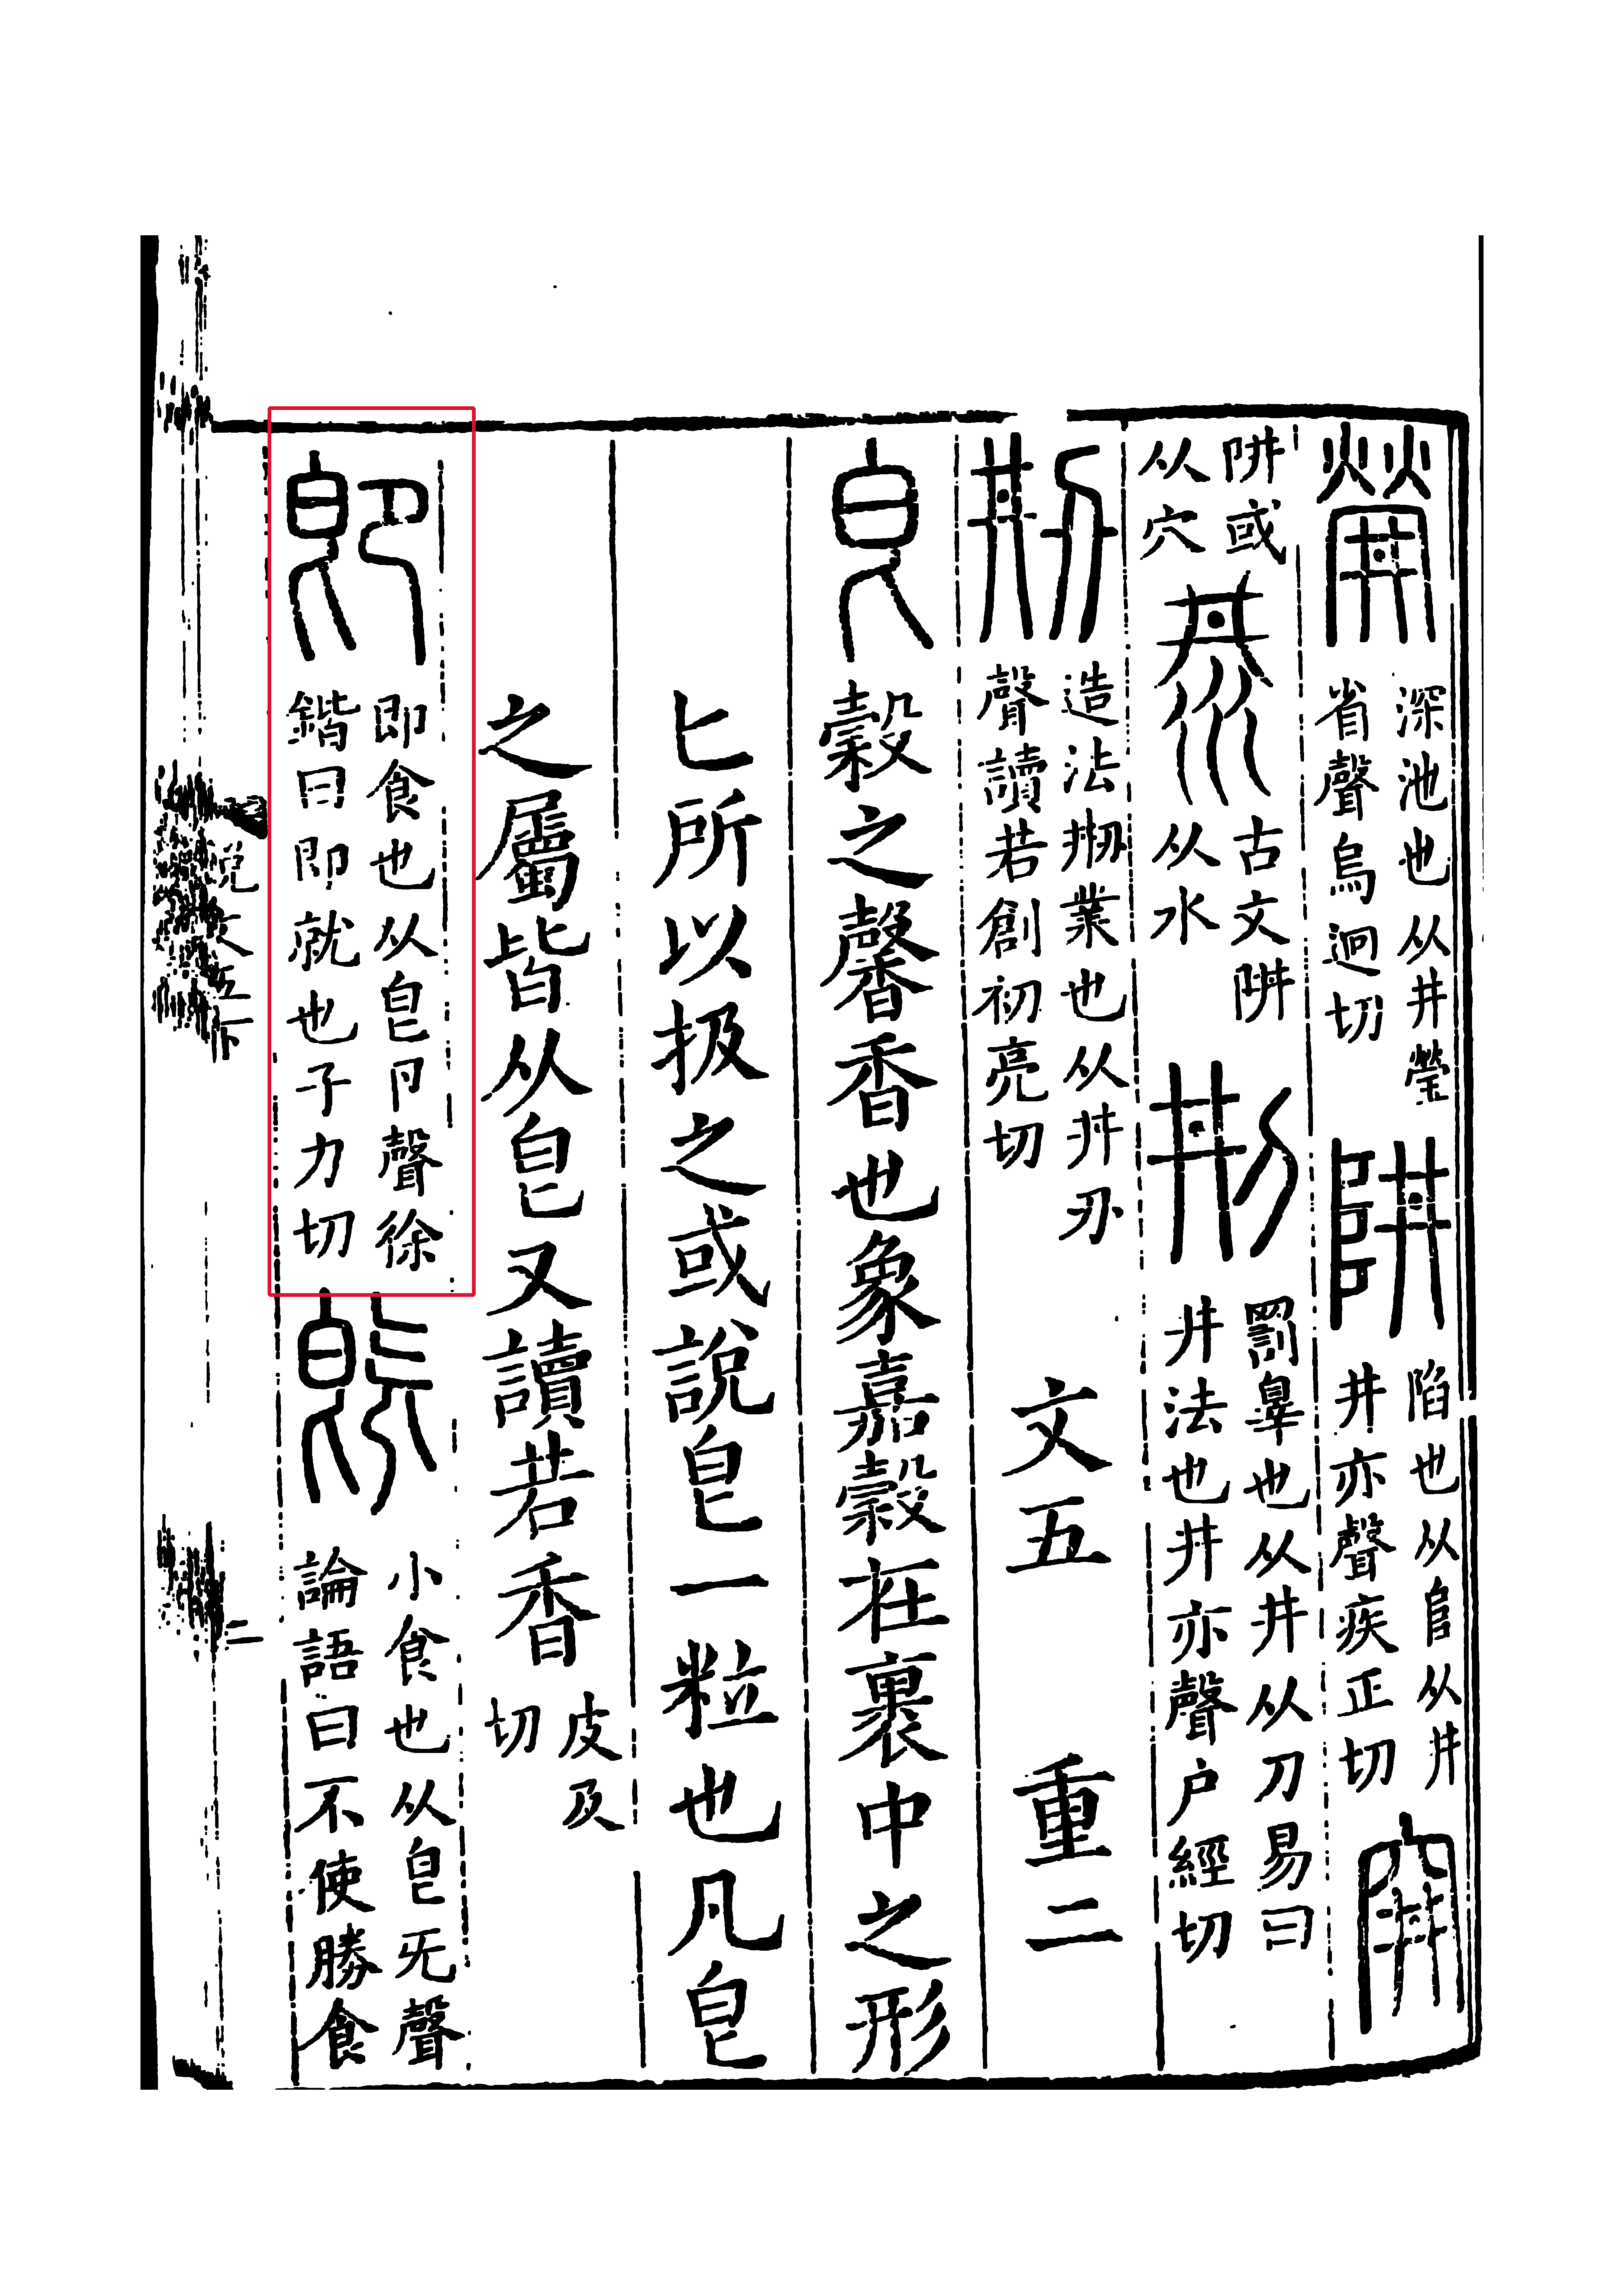 深池也从井瑩
省聲烏迥切
阱
陷也从𨸏从井
井亦聲疾正切
穽
阱或
从穴
汬
古文阱
从水
㓝
罰辠也从井从刀易曰
井法也井亦聲户經切
刱
造法刱業也从井刅
聲讀若創初亮切
文五 重二
皀 穀之馨香也象嘉穀在裹中之形
匕所以扱之或說皀一粒也凡皀
之屬皆从皀又讀若香
皮及
切
即
即食也从皀卪聲徐
鍇曰即就也子力切
既
小食也从皀旡聲
論語曰不使勝食
說文五下
二